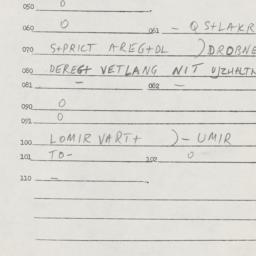 050 0
060 0 061 - Q S+LAKR
070 S+PRICT AREG+DL )DROBNE
080 DEREG+ VETLANG NIT UJZHALTN
081 - 082 -
090 0
091 0
100 LOMIR VART+ )- UMIR
101 TO- 102 0
110 -